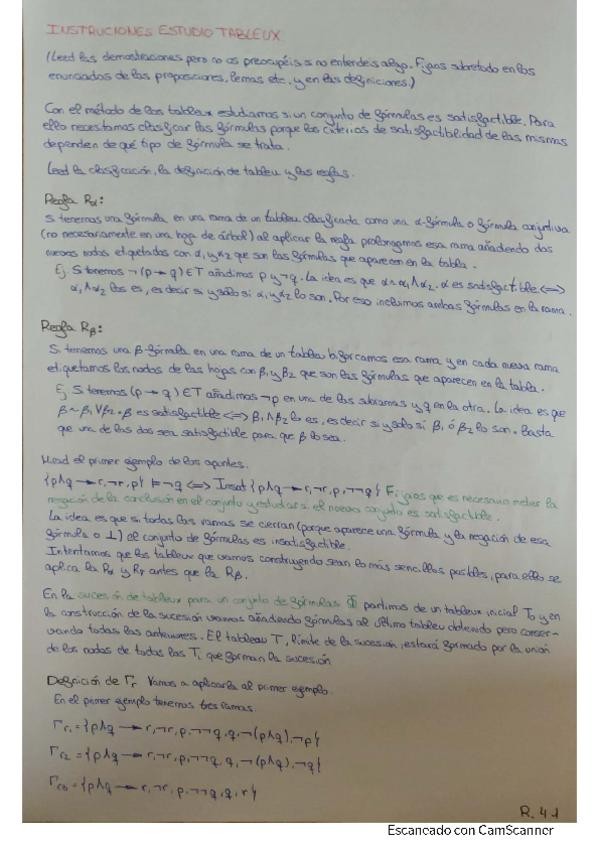 INSTRUCIONES ESTUDIO TABLEUX
(Leed las demostraciones pero no os preocupéis si no entendeis algo. Fijaos sobretodo en los
enunciados de las proposiciones, lemas etc, y en las definiciones.)
Con el método de los tableux estudiamos si un conjunto de fórmulas es satisfactible. Para
ello necesitamos clasificar las fórmulas porque los criterios de satisfactibilidad de las mismas
dependen de qué tipo de fórmula se trata.
Leed la clasificación, la definición de tableu y las reglas.
Regla Rα:
Si tenemos una fórmula en una rama de un tableu clasificada como una α-fórmula o fórmula conjuntiva
(no necesariamente en una hoja de árbol) al aplicar la regla prolongamos esa rama añadiendo dos
nuevos nodos etiquetados con α₁ y α₂ que son las fórmulas que aparecen en la tabla.
Ej. Si tenemos ¬(p→q) ∈ T añadimos p y ¬q. La idea es que α~α₁∧α₂. α es satisfactible ⟺
α₁∧α₂ los es, es decir si y sólo si α₁ y α₂ lo son. Por eso incluimos ambas fórmulas en la rama.
Regla Rβ:
Si tenemos una β-fórmula en una rama de un tableu bifurcamos esa rama y en cada nueva rama
etiquetamos los nodos de las hojas con β₁ y β₂ que son las fórmulas que aparecen en la tabla.
Ej Si tenemos (p→q) ∈ T añadimos ¬p en una de las subramas y q en la otra. La idea es que
β~β₁∨β₂. β es satisfactible ⟺ β₁∧β₂ lo es, es decir si y sólo si β₁ ó β₂ lo son. Basta
que una de las dos sea satisfactible para que β lo sea.
Mirad el primer ejemplo de los apuntes.
{p∧q→r, ¬r, p} ⊨ ¬q ⟺ Insat {p∧q→r, ¬r, p, ¬¬q} Fijaros que es necesario meter la
negación de la conclusión en el conjunto y estudiar si el nuevo conjunto es satisfactible.
La idea es que si todas las ramas se cierran (porque aparece una fórmula y la negación de esa
fórmula o ⊥) el conjunto de fórmulas es insatisfactible.
Intentamos que los tableux que vamos construyendo sean lo más sencillos posibles, para ello se
aplica la Rα y Rγ antes que la Rβ.
En la sucesión de tableux para un conjunto de fórmulas Φ partimos de un tableux inicial T₀ y en
la construcción de la sucesión vamos añadiendo fórmulas al último tableu obtenido pero conser-
vando todas las anteriores. El tableau T, límite de la sucesión, estará formado por la unión
de los nodos de todas las Tᵢ que forman la sucesión
Definición de Γr. Vamos a aplicarla al primer ejemplo.
En el primer ejemplo tenemos tres ramas.
Γr₁ = {p∧q → r, ¬r, p, ¬¬q, q, ¬(p∧q), ¬p}
Γr₂ = {p∧q → r, ¬r, p, ¬¬q, q, ¬(p∧q), ¬q}
= {p∧q → r, ¬r, p, ¬¬q, q, r}
R. 4.1
Escaneado con CamScanner